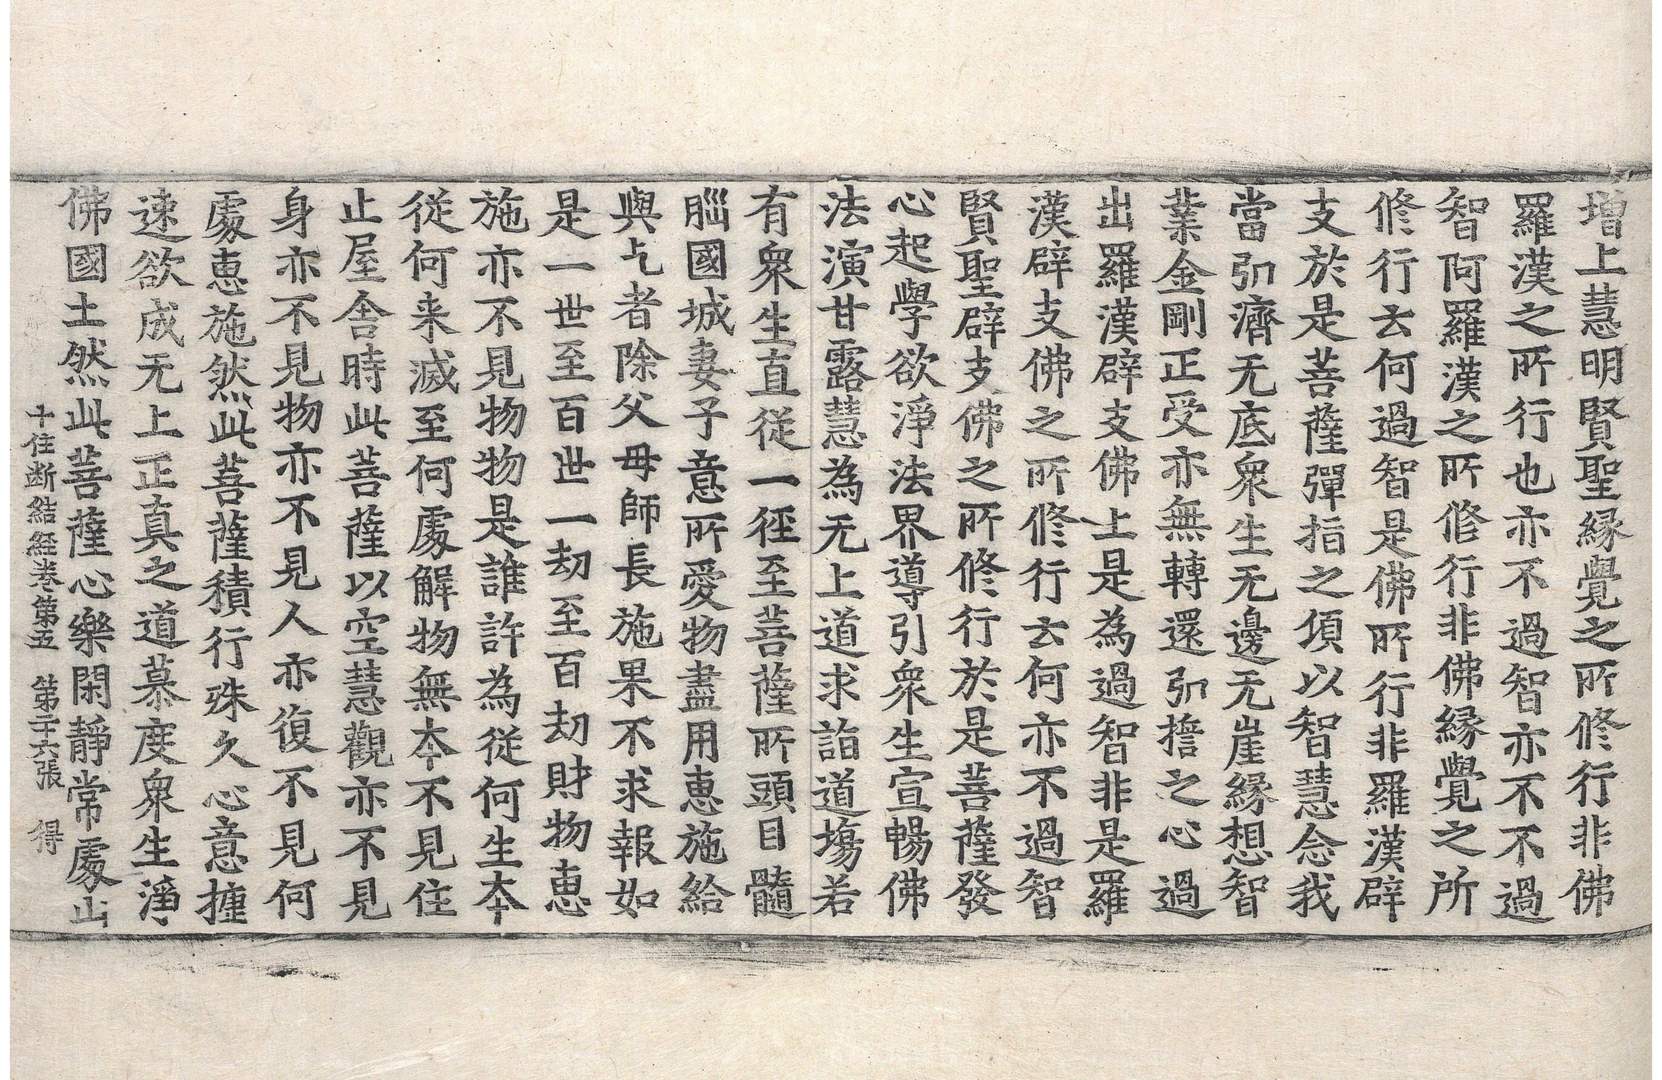 增上慧明賢聖緣覺之所修行非佛
羅漢之所行也亦不過智亦不不過
智阿羅漢之所修行非佛緣覺之所
修行云何過智是佛所行非羅漢辟
支於是菩薩彈指之頃以智慧念我
當弘濟无底衆生无邊无崖緣想智
業金剛正受亦無轉還弘誓之心過
出羅漢辟支佛上是為過智非是羅
漢辟支佛之所修行云何亦不過智
賢聖辟支佛之所修行於是菩薩發
心起學欲淨法界導引衆生宣暢佛
法演甘露慧為无上道求詣道塲若
有衆生直從一徑至菩薩所頭目髓
腦國城妻子意所愛物盡用惠施給
與乞者除父母師長施果不求報如
是一世至百世一劫至百劫財物惠
施亦不見物物是誰許為從何生夲
從何来滅至何處解物無夲不見住
止屋舍時此菩薩以空慧觀亦不見
身亦不見物亦不見人亦復不見何
處惠施然此菩薩積行殊久心意摙
速欲成无上正真之道慕度衆生淨
佛國土然此菩薩心樂閑靜常處山
十住断結経卷第五　第二十六張　得